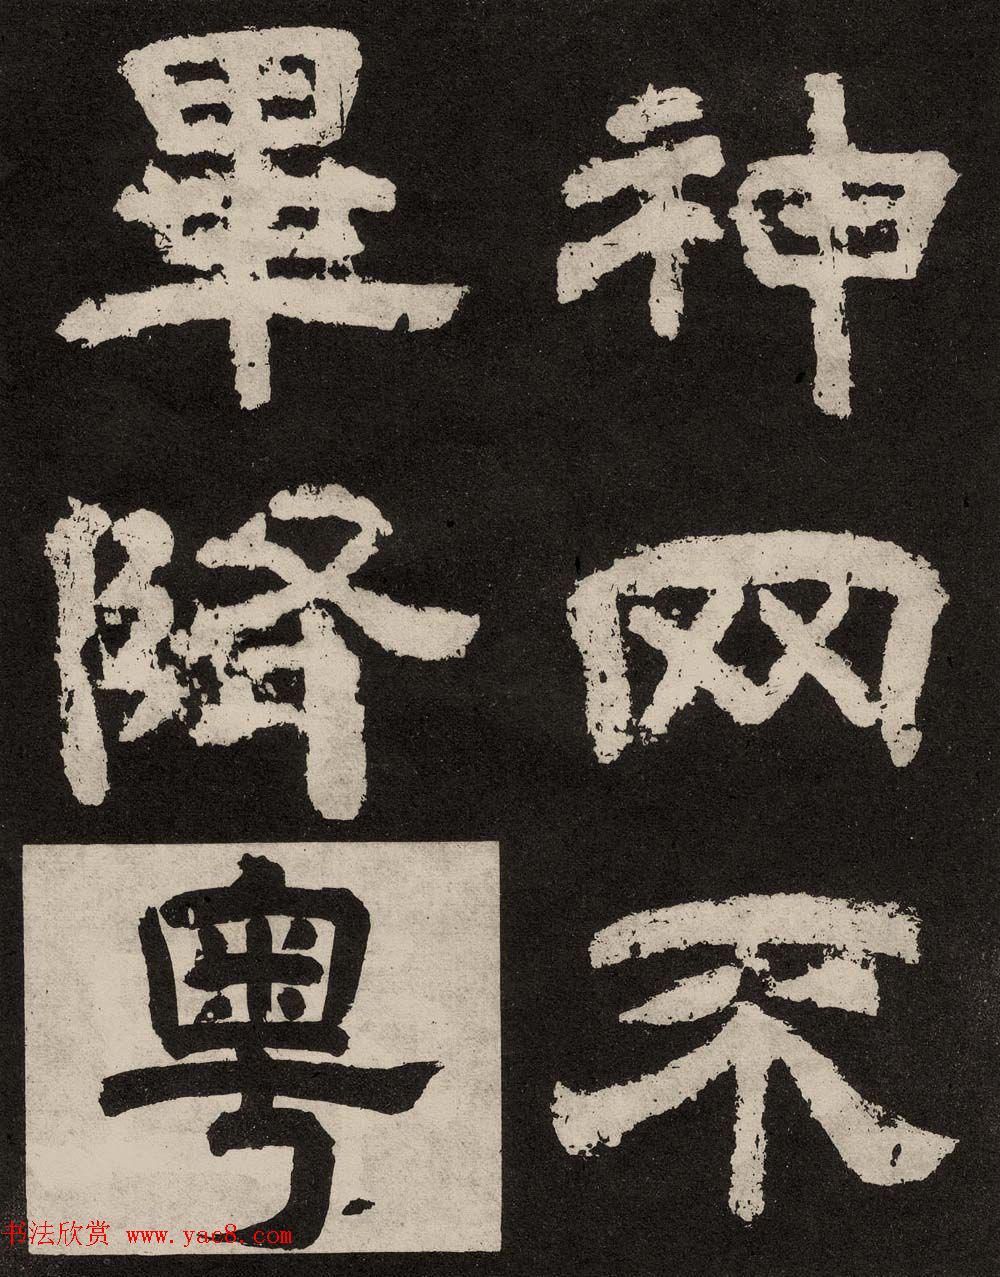 神网不
畢降粤
书法欣赏 www.yac8.com